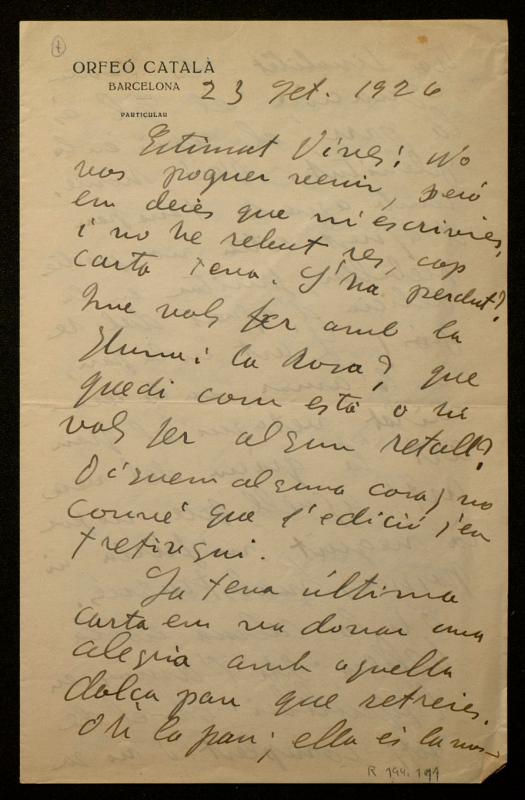 ORFEÓ CATALÀ
BARCELONA
PARTICULAR
23 Set. 1926
Estimat Vives: No
vas poguer venir, però
em deies que m'escriuries,
i no he rebut res, cap
carta teva. S'ha perdut?
Que vols fer amb la
i la Rosa? que
quedi com està o hi
vols fer algun retall?
Diguem alguna cosa; no
convé que l'edició s'en
tretingui.
La teva última
carta em va donar una
alegria amb aquella
dolça pau que retreies.
Oh la pau; ella és la nos-
R 194. 191